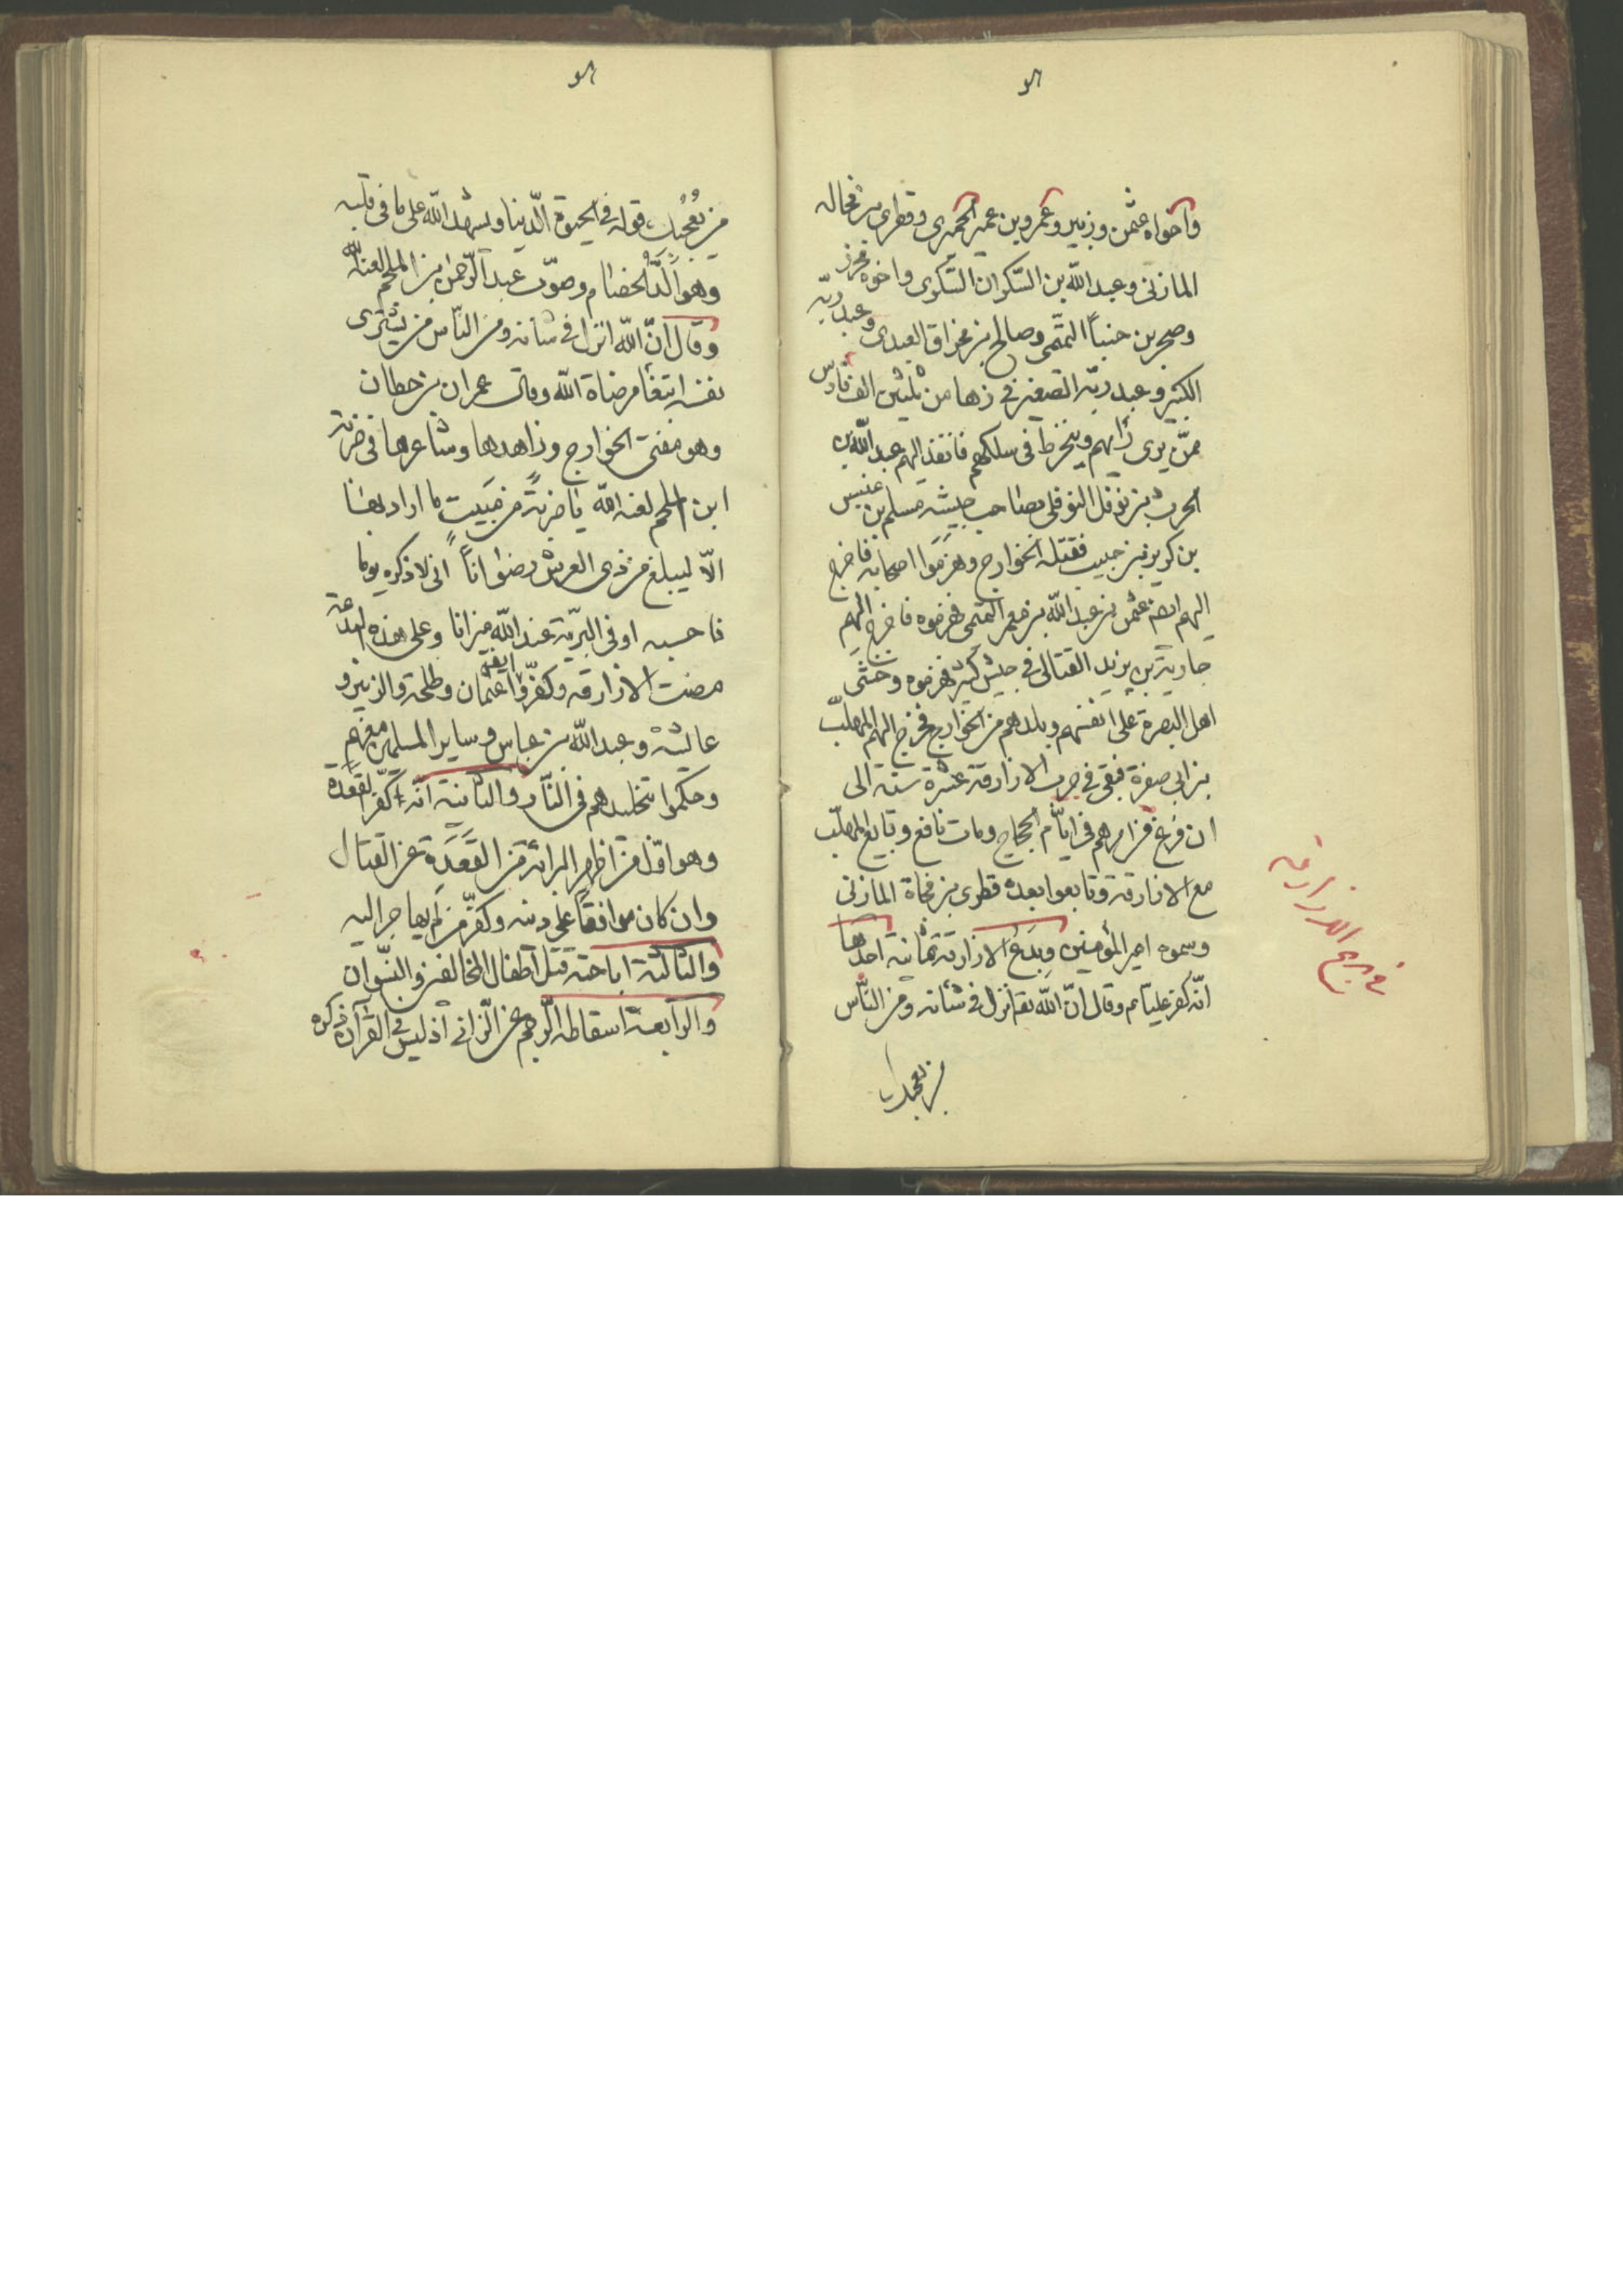 واخواه عثمن وزبير وعمرو بن عمير الحميرى وقطرى بن فجاله
المازنى وعبد الله بن السكران السكرى واخوه محرز
وصحر بن حنبا التممى وصالح بن مخراق العبدى وعبد ربّه
الكبير وعبد ربّه الصغير فى زها من ثلثين الف فارس
ممّن يرى رأيهم وينخرط فى سلكهم فانفذ اليهم عبد الله بن
الحرث بن نوفل النوفلى بصاحب جيشه مسلم بن عنبس
بن كريز بن حبيب فقتله الخوارج وهزموا اصحابه فاخرج
اليهم ايضا عثمن بن عبد الله بن معمر التممى فهزموه فاخرج اليهم
حارثة بن يزيد القتالى فى جيش كثير فهزموه وخشى
اهل البصرة على انفسهم وبلدهم من الخوارج فخرج اليهم المهلّب
بن ابى صفرة فبقى فى حرب الازارقة عشرة سنة الى
ان فرغ من امرهم فى ايّام الحجاج ومات نافع وتبايع المهلّب
مع الازارقة وتابعوا بعده قطرى بن فجاة المازنى
وسموه امير المؤمنين وبدع الازارقة ثمانية احدها
انّه كفر عليّا عم وقال انّ الله تع انزل فى شانه ومن النّاس
من يعجبك
فى بدع الازارقه
من يعجبك قوله فى الحيوة الدّنيا ويشهد الله على ما فى قلبه
وهو الدّ الخصام وصوّب عبد الرّحمن بن الملجم لعنه الله
وقال انّ الله انزل فى شانه ومن النّاس من يشترى
نفسه ابتغا مرضاة الله وقال عمران بن حطان
وهو مفتى الخوارج وزاهدها وشاعرها فى ضربة
ابن الملجم لعنه الله يا ضربة من منيب ما اراد بها
الّا ليبلغ من ذى العرش رضوانا انى لاذكره يوما
فاحسبه اوفى البريّة عند الله ميزانا وعلى هذه البدعة
مضت الازارقه وكفّروا ايضا عثمان وطلحة والزبير و
عائشة وعبد الله بن عباس وساير المسلمين معهم
وحكموا بتخليدهم فى النّار والثّانية انّه كفر القعدة
وهو اوّل من اظهر البرائة من القعدة عن القتال
وان كان موافقا على دينه وكفّر من لم يهاجر اليه
والثّالثة اباحته قتل اطفال المخالفين والنّسوان
والرّابعة اسقاطه الرّجم عن الزّانى اذ ليس فى القرآن ذكره